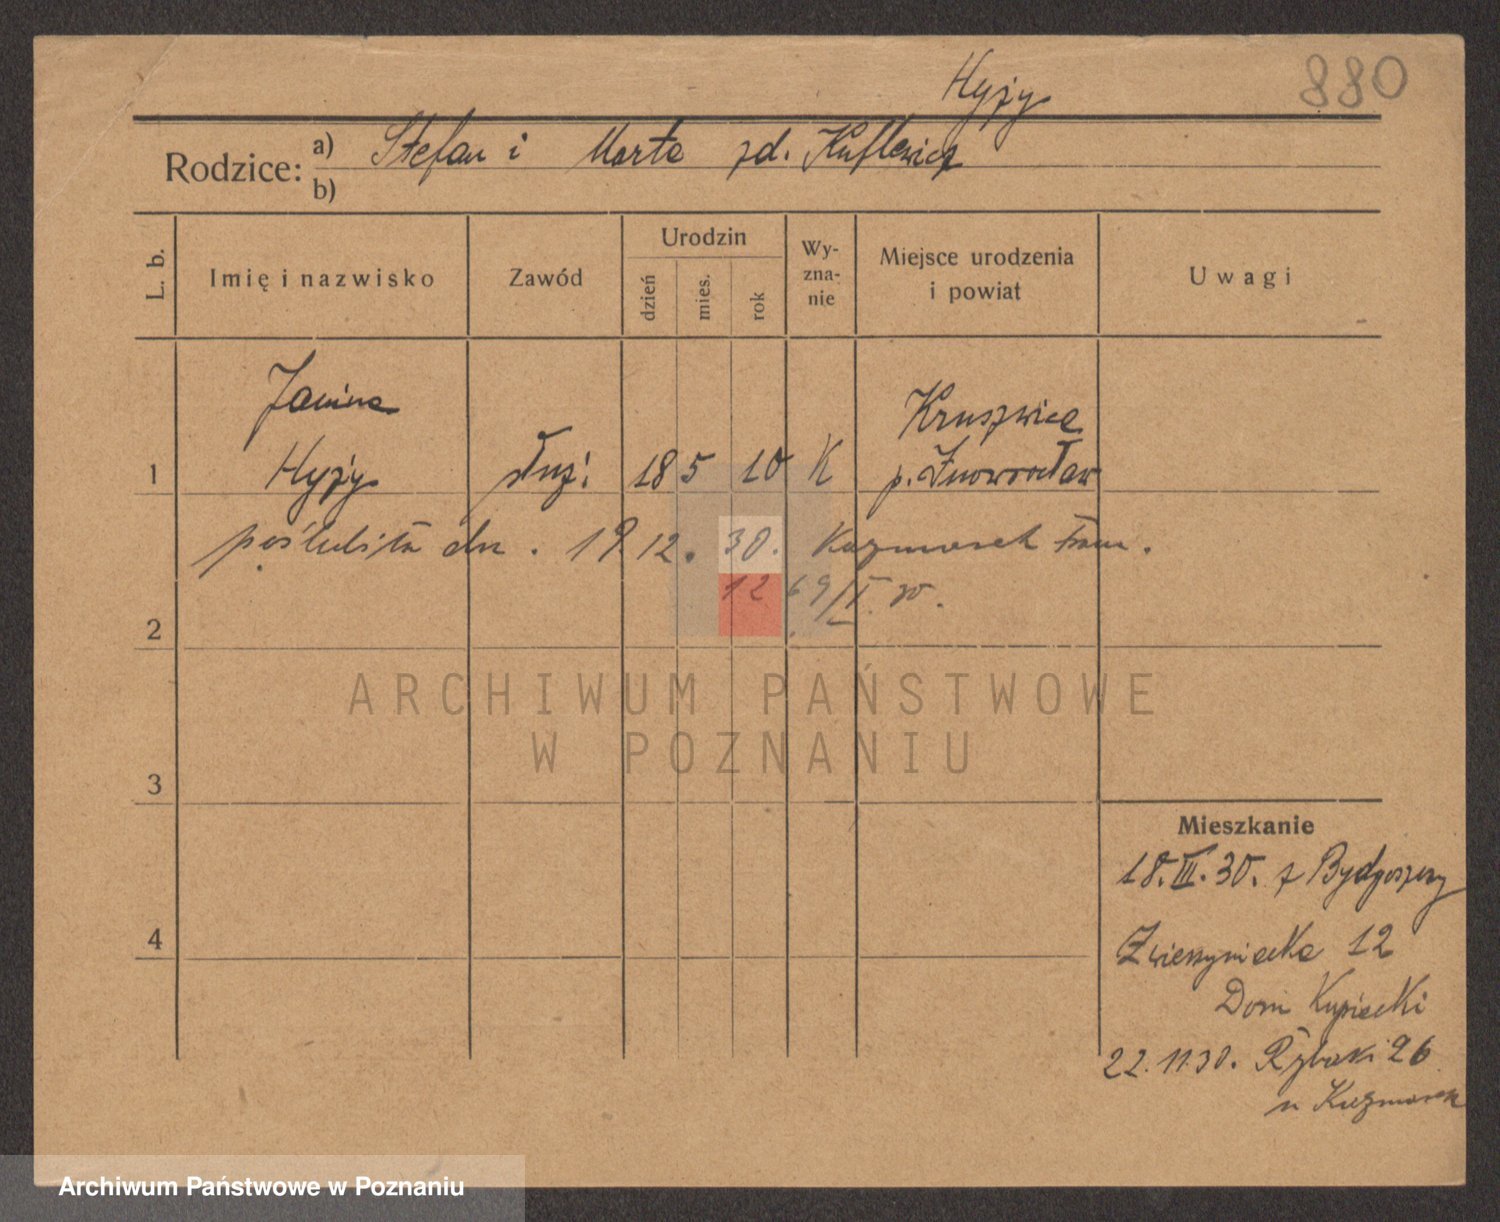 880
Hyży
Rodzice: a) Stefan i Marta zd. Kuflewicz
b)
L. b. Imię i nazwisko Zawód Urodzin dzień mies. rok Wy-zna-nie Miejsce urodzenia i powiat Uwagi
Janina Kruszwica
1 Hyży służ. 18 5 10 K p. Inowrocław
poślubiła dn. 19 12. 30. Kazmarek Fran.
12
2
ARCHIWUM PAŃSTWOWE
W POZNANIU
3
Mieszkanie
18.III.30. z Bydgoszczy
4
Zwierzyniecka 12
Dom Kupiecki
22.11.30. Rybaki 26
u Kazmarek
Archiwum Państwowe w Poznaniu